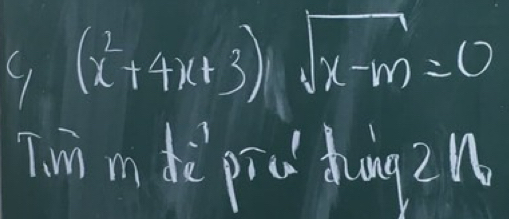 c, (x²+4x+3) √(x-m) = 0
Tìm m để pT có đúng 2 N₀